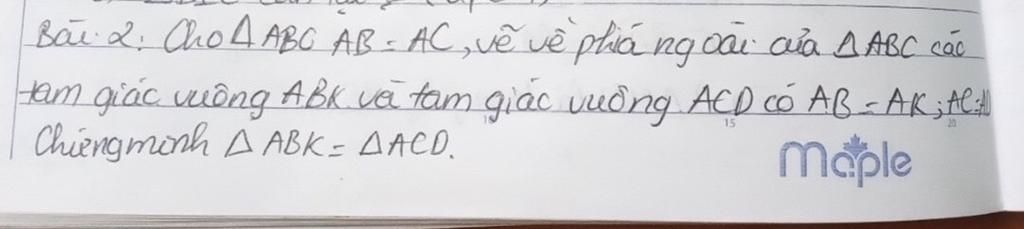 Bài 2: Cho Δ ABC AB = AC, vẽ về phía ngoài của Δ ABC các
tam giác vuông ABK và tam giác vuông ACD có AB = AK; AC = AD
Chứng minh Δ ABK = Δ ACD.
15
20
maple